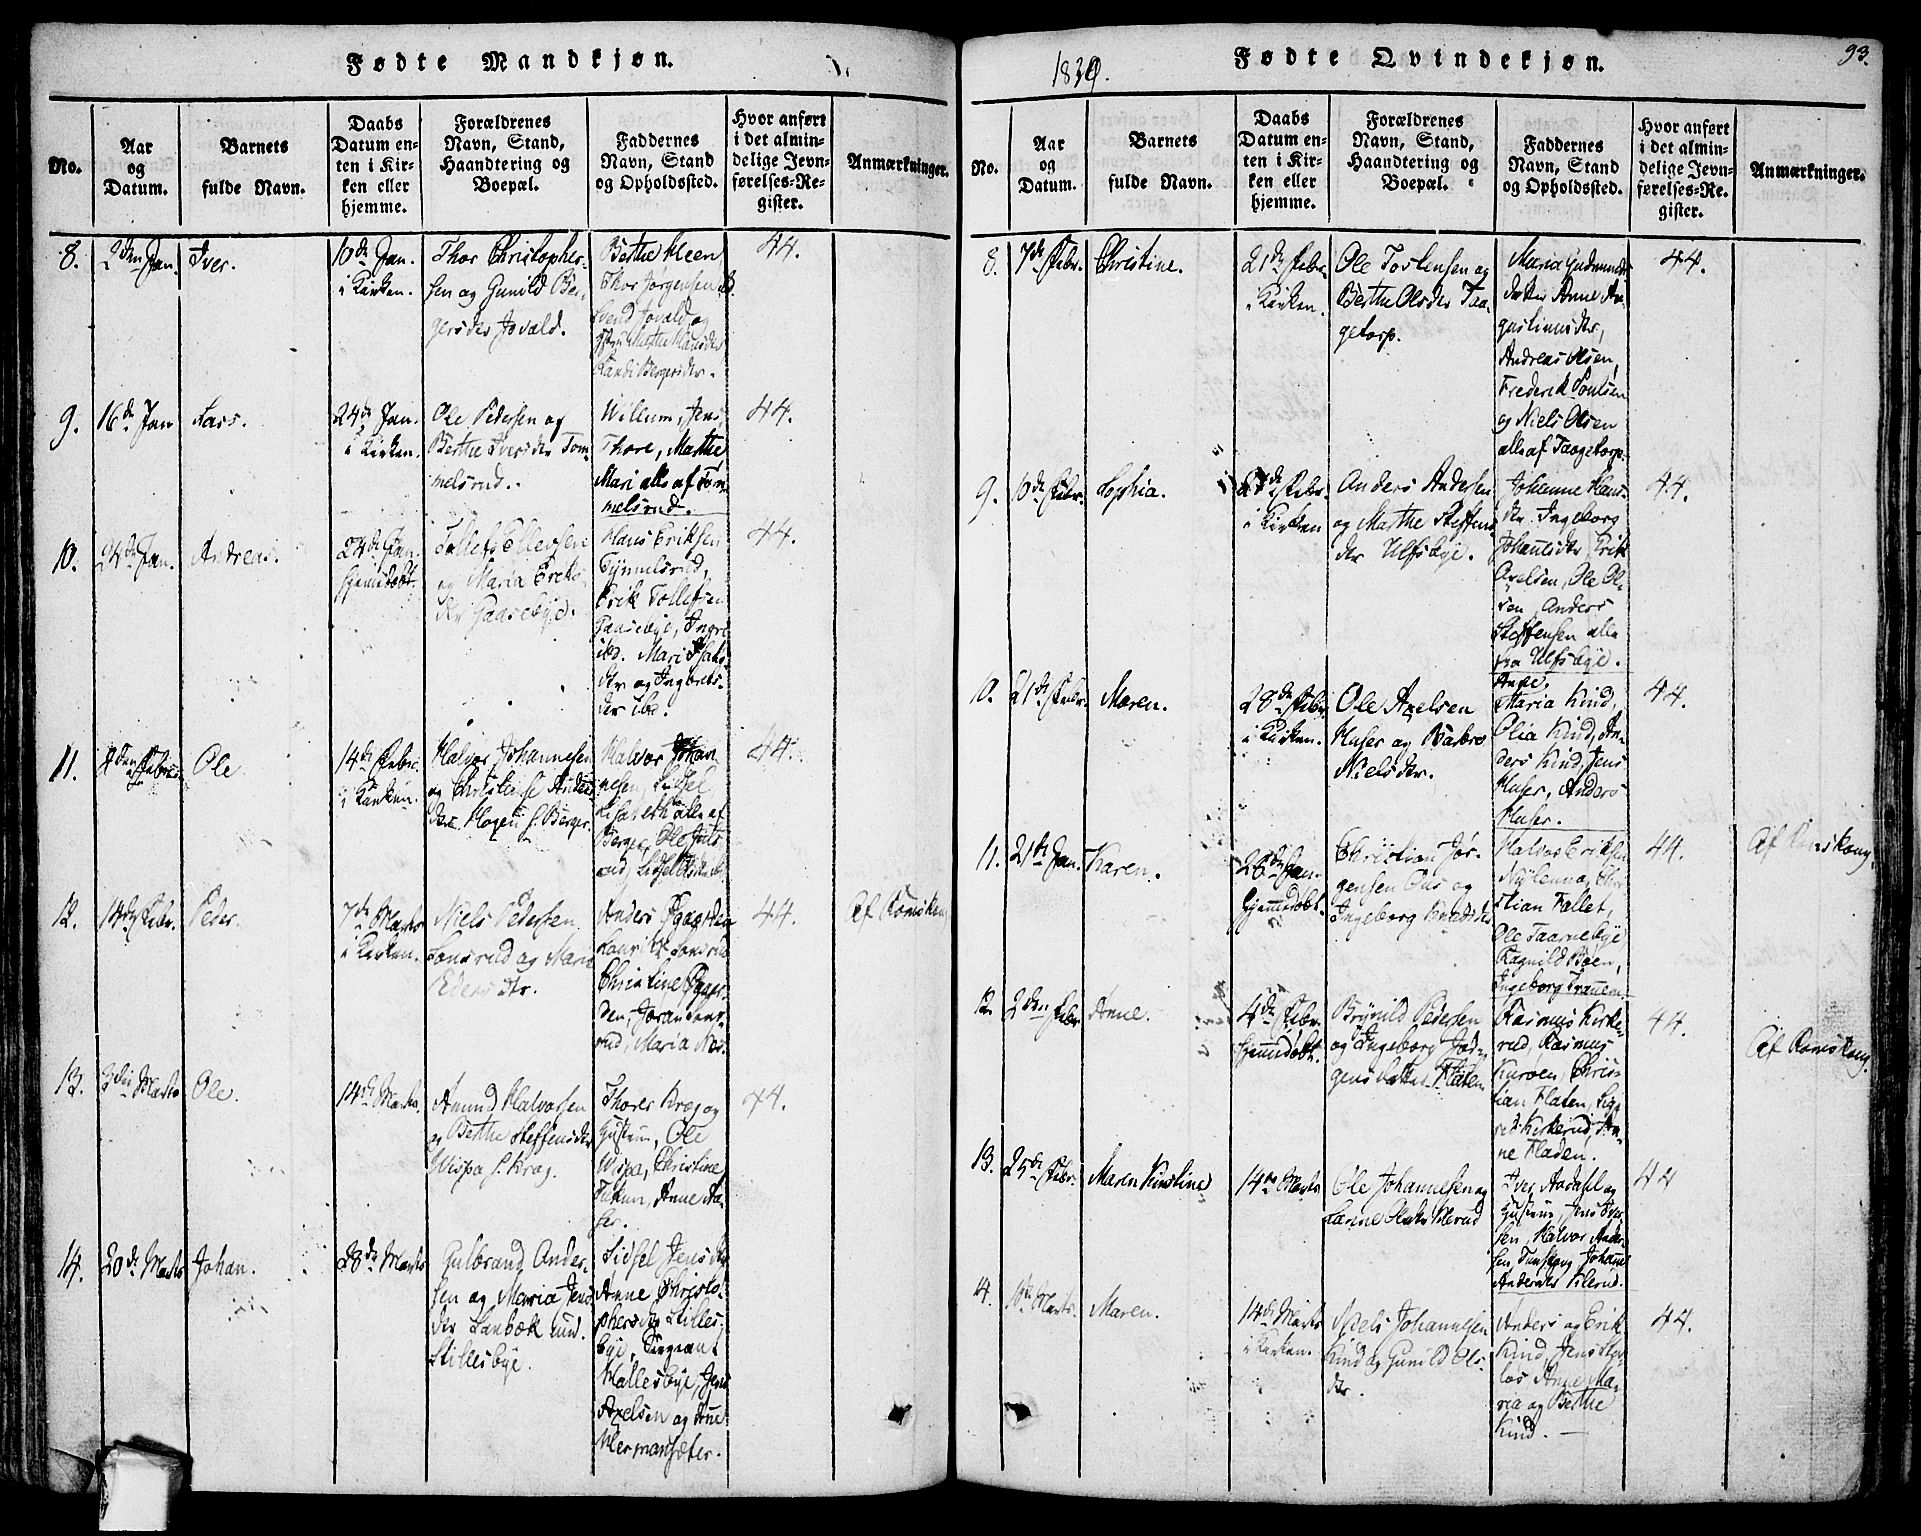 Fødte Mandkjøn.
No.
Aar
og
Datum.
Barnets
fulde Navn.
Daabs
Datum en-
ten i Kir-
ken eller
hjemme.
Forældrenes
Navn, Stand,
Haandtering og
Boepæl.
Faddernes
Navn, Stand
og Opholdssted.
Hvor anført
i det almin-
delige Jevn-
førelses-Re-
gister.
Anmærkninger.
8.
2den Jan.
Iver.
10de Jan.
i Kirken.
Thor Christopher-
sen og Gunild Ber-
gersdtr
Berthe Kleen
Thor Jørgensen
44.
9.
16de Jan
Lars.
24de Jan.
i Kirken.
Ole Pedersen og
Berthe Iversdtr Tom-
melsrud.
Willum, Jens,
Thore, Marthe
Mari alle af Tom-
melsrud.
44.
10.
24de Jan.
Andreas.
24de Jan.
hjemmedøbt.
Tollef Ellevsen
og Maria Eriks-
dtr Gaasebye.
Hans Eriksen
Tymmelsrud,
Erik Tollefsen
Gaasebye, Ingre
ibd. Mari
dtr og Ingbrets-
dtr ibd.
44.
11.
Ole
14de Febr.
i Kirken.
Halvor Johannesen
og Christense
Halvor Johan-
nesen, Lidsel,
Lisabeth alle af
Berger, Ole
44.
12.
14de Febr.
Peder.
7de Marts
i Kirken.
Niels Pedersen
og Marie
Pedersdtr.
Anders
Christine
Maria
44.
Af Romskog
13.
3die Marts
Ole.
14de Marts.
Amund Halvorsen
og Berthe Steffensdtr
Wispa s. Krog.
Thorer Krog og
Hustru, Ole
Wispa, Christine
Anne
44.
14.
20de Marts
Johan.
28de Marts
Gulbrand Ander-
sen og Maria Jens-
dtr Lanbæk und.
Stillesbye.
Lidsel Jensdtr
Anne Christo-
phersdtr Stilles-
bye, Sergeant
Hallesbye, Jens
Axelsen og Anne
Hermansæter.
1830.
Fødte Qvindekjøn.
93.
No.
Aar
og
Datum.
Barnets
fulde Navn.
Daabs
Datum en-
ten i Kir-
ken eller
hjemme.
Forældrenes
Navn, Stand,
Haandtering og
Boepæl.
Faddernes
Navn, Stand
og Opholdssted.
Hvor anført
i det almin-
delige Jevn-
førelses-Re-
gister.
Anmærkninger.
8.
7de Febr.
Christine.
21de Febr.
i Kirken.
Ole Torstensen og
Berthe Olsdtr Taa-
getorp.
Maria Gudmunds-
datter Anne Au-
gustinusdtr,
Andreas Olsen,
Frederik Poulsen
og Niels Olsen
alle af Taagetorp.
44.
9.
10de Febr.
Sophia.
Febr.
i Kirken
Anders Andersen
og Marthe Steffens-
dtr Ulfsbye.
Johanne Hans-
dtr, Ingeborg
Johansdtr, Erik
Axelsen, Ole Ol-
sen, Anders
Steffensen alle
fra Ulfsbye.
44.
10.
21de Febr.
Maren.
28de Febr.
i Kirken.
Ole Axelsen
Huser og Barbro
Nielsdtr.
Anne,
Maria Kind,
Olia Kind, An-
ders Kind, Jens
Huser, Anders
Huser.
44.
11.
21de Jan.
Karen.
26de Jan.
Hjemmedøbt.
Christian Jør-
gensen Ous og
Ingeborg Knudsdtr
Halvor Eriksen
Nylenna, Chri-
stian Fallet,
Ole Taarnebye
Ragnild Boen,
Ingeborg Trauen.
44.
Af Romskoug.
12.
2den Febr
Anne.
4de Febr.
hjemmedøbt.
Brynild Pedersen
og Ingeborg Jør-
gensdatter Flaten.
Rasmus Kirke-
rud, Rasmus
Kurøen, Chris-
tian Flaten, Sig-
ret Kirkerud, An-
ne Fladen.
44.
Af Romskoug.
13.
25de Febr.
Maren Kirstine
14de Marts
Ole Johannesen og
Iver Aadahl og
Hustrue, Jens Iver-
sen, Halvor Ander-
sen, Johanne
44
14.
Marts.
Maren.
14de Marts
i Kirken.
Niels Johannesen
Kind og Gunild Ols-
dtr.
Anders og Erik
Kind, Jens
Anne Ma-
ria og Berthe
Kind.
44.